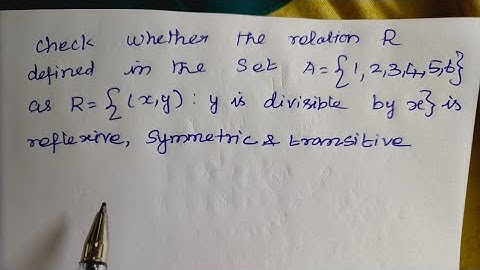 check whether the relation R
defined in the set A = {1,2,3,4,5,6}
as R = { (x,y) : y is divisible by x} is
reflexive, symmetric & transitive